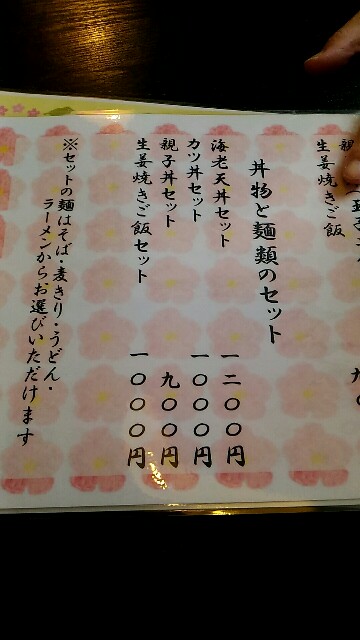 生姜焼きご飯
丼物と麺類のセット
海老天丼セット 一二〇〇円
カツ丼セット 一〇〇〇円
親子丼セット 九〇〇円
生姜焼きご飯セット 一〇〇〇円
※セットの麺はそば・麦きり・うどん・
ラーメンからお選びいただけます